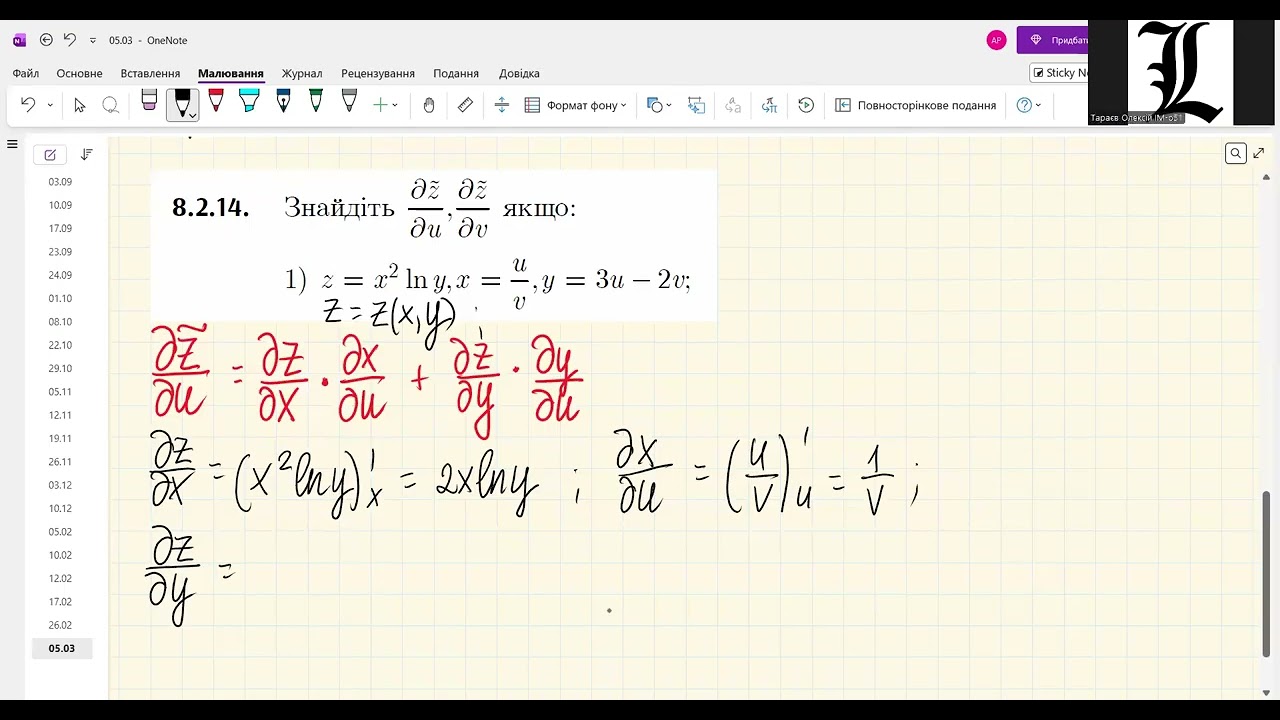 05.03 - OneNote
АР
Придбати
Файл Основне Вставлення Малювання Журнал Рецензування Подання Довідка
Sticky No
Формат фону
Повносторінкове подання
L
Тараєв Олексій ІМ-051
03.09
10.09
17.09
23.09
24.09
01.10
08.10
22.10
29.10
05.11
12.11
19.11
26.11
03.12
10.12
05.02
10.02
12.02
17.02
26.02
05.03
8.2.14. Знайдіть ∂z̃/∂u, ∂z̃/∂v якщо:
1) z = x² ln y, x = u/v, y = 3u − 2v;
z = z(x,y)
∂z̃/∂u = ∂z/∂x · ∂x/∂u + ∂z/∂y · ∂y/∂u
∂z/∂x = (x² ln y)'ₓ = 2x ln y ; ∂x/∂u = (u/v)'ᵤ = 1/v ;
∂z/∂y =